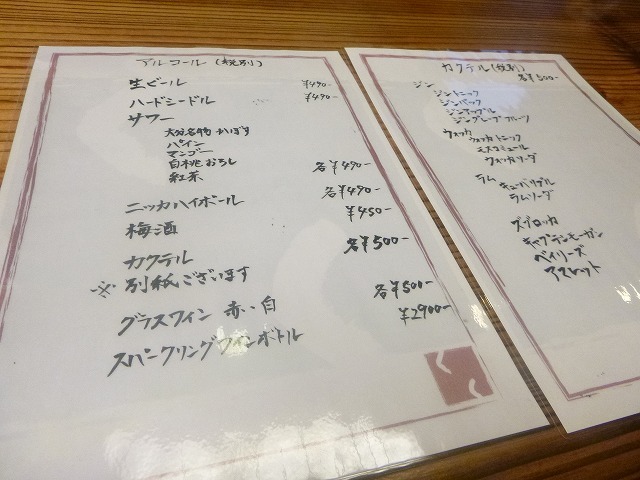 アルコール (税別)
生ビール ¥490-
ハードシードル ¥490-
サワー
大分名物 かぼす
パイン
マンゴー
白桃おろし
紅茶 各¥490-
ニッカハイボール 各¥490-
梅酒 ¥450-
カクテル 各¥500-
※ 別紙ございます
グラスワイン 赤・白 各¥500-
スパークリングワインボトル ¥2900-
カクテル (税別)
各¥500-
ジン
ジントニック
ジンバック
ジンアップル
ジングレープフルーツ
ウォッカ
ウォッカトニック
モスコミュール
ウォッカソーダ
ラム
キューバリブレ
ラムソーダ
ズブロッカ
キャプテンモーガン
ベイリーズ